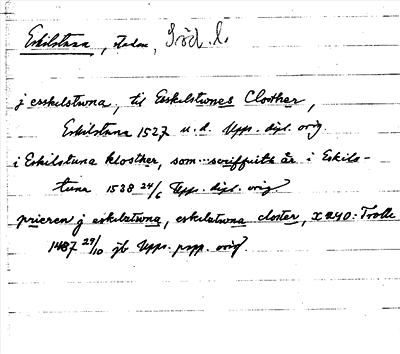 Eskilstuna, staden, Söd. l.
j esskilstwna, til Esskilstwnes Closther,
Eskilstuna 1527 u.d. Upps. dipl. orig.
i Eskilstuna kloster, som ... år i Eskils-
tuna 1538 24/6 Upps. dipl. orig
prieren j eskilstwna, eskilstwna closter, x 240: Trolle
1487 29/10 jb Upps. papp. orig.